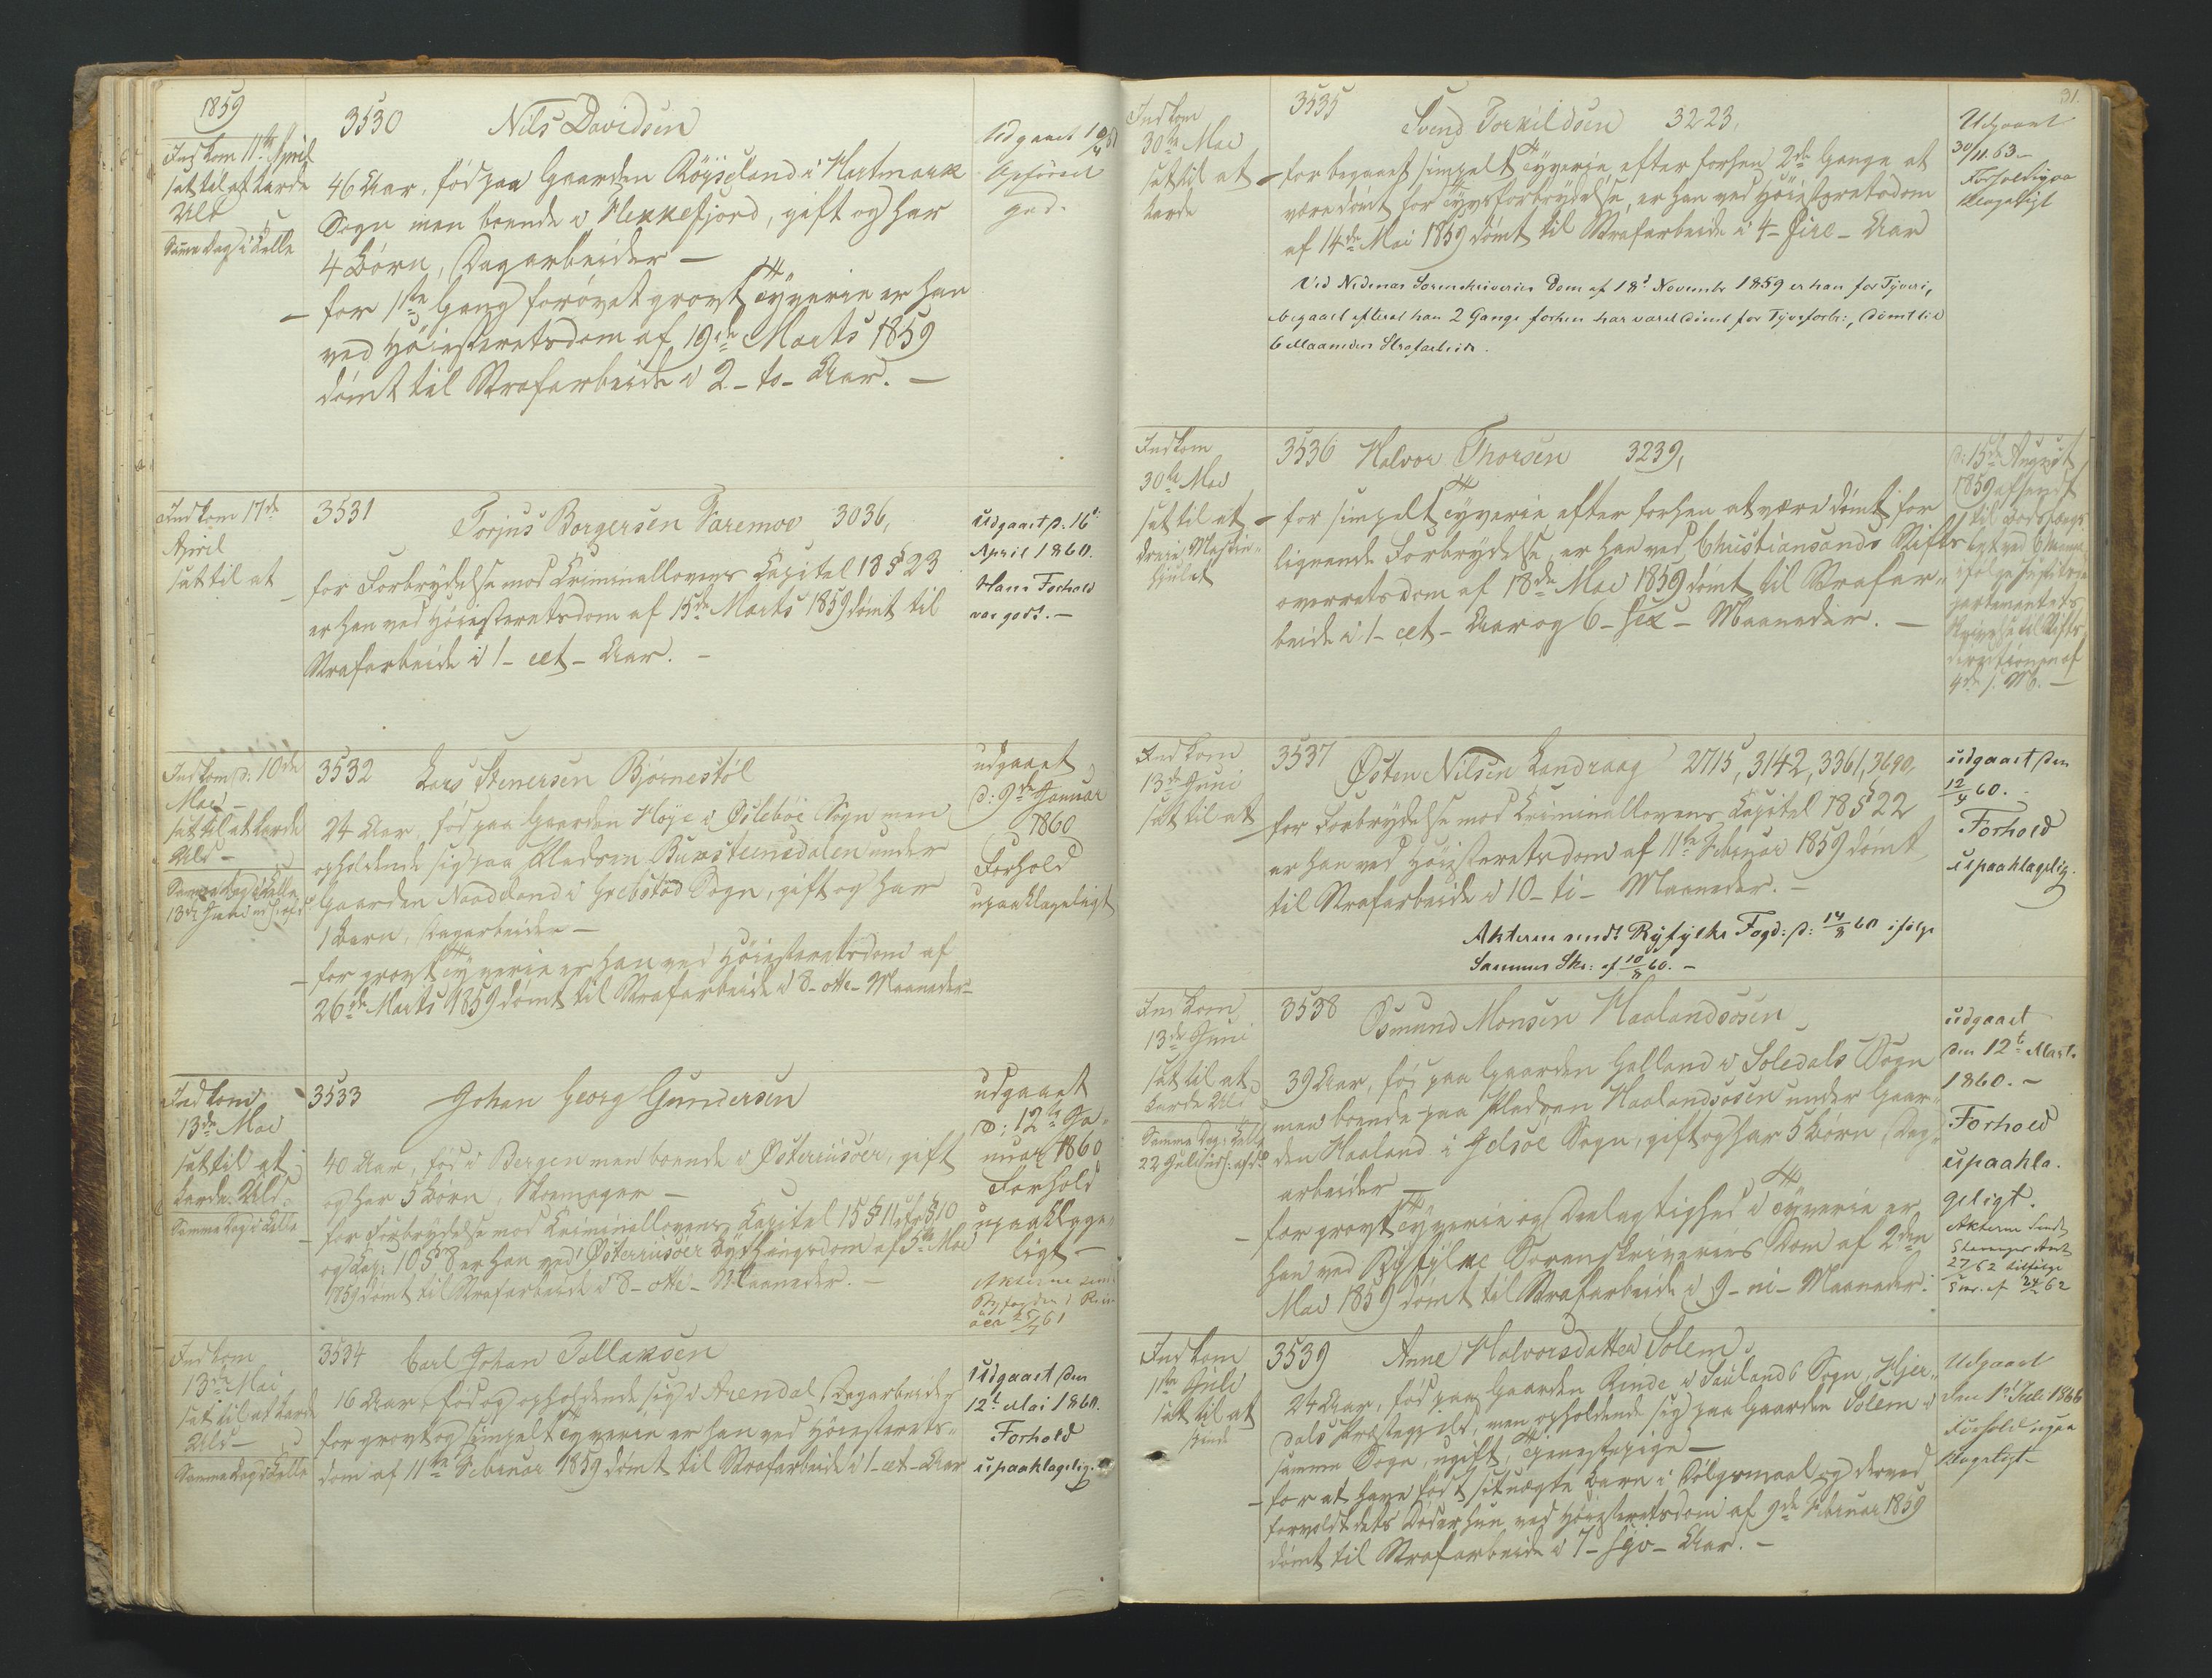 1859
Indkom 11te April
sat til at karde
Uld
Samme Dag i Celle
3530 Nils Davidsen
46 Aar, fød paa Gaarden Röyseland i Hartmark
Sogn men boende i Flekkefjord, gift og har
4 Børn, Dagarbeider —
— for 1ste Gang forøvet grovt Tyverie er han
ved Høiesteretsdom af 19de Marts 1859
dømt til Strafarbeide i 2 - to - Aar. —
Udgaaet
Opførsel
god.
Indkom 17de
April
sat til at
3531 Torjus Borgersen Varemoe 3036,
for Forbrydelse mod Criminallovens Capitel 18 § 23
er han ved Høiesteretsdom af 15de Marts 1859 dømt til
Strafarbeide i 1 - et - Aar. —
Udgaaet d. 16d
April 1860.
Hans Forhold
var godt. —
Indkom d: 10de
Mai —
sat til at karde
Uld —
Samme Dag i Celle
13de Juni
3532 Lars Stenersen Bjørnestøl
24 Aar, fød paa Gaarden Høje i Øslebøe Sogn men
opholdende sig paa Pladsen Buxsteensdalen under
Gaarden Naadeland i Grebstad Sogn, gift og har
1 Barn, Dagarbeider —
— for grovt Tyverie er han ved Høiesteretsdom af
26de Marts 1859 dømt til Strafarbeide i 8 - otte - Maaneder —
udgaaet
d: 9de Januar
1860
Forhold
upaaklageligt
Indkom
13de Mai
sat til at
karde Uld.
Samme Dag i Celle
3533 Johan Georg Gundersen
40 Aar, fød i Bergen men boende i Østerriisöer, gift
og har 5 Børn, Skomager —
— for Forbrydelse mod Criminallovens Capitel 15 § 11 cfr § 10
og Cap: 10 § 8 er han ved Østerriisöer Bythingsdom af 5te Mai
1859 dømt til Strafarbeide i 8 - otte - Maaneder. —
udgaaet
d: 12te Ja-
nuar 1860
Forhold
upaaklage-
ligt —
Akterne sendt
Byfogden i Riis-
Indkom
13de Mai
sat til at karde
Uld —
Samme Dag i Celle
3534 Carl Johan Tallaksen
16 Aar, fød og opholdende sig i Arendal, Dagarbeider
for grovt og simpelt Tyverie er han ved Høiesterets-
dom af 11te Februar 1859 dømt til Strafarbeide i 1 - et - Aar
Udgaaet den
12t Mai 1860.
Forhold
upaaklagelig.
31.
Indkom
30te Mai
sat til at
karde
3535 Svend Torkildsen 3223,
— for begaaet simpelt Tyverie efter forhen 2de Gange at
være dømt for Tyvsforbrydelse, er han ved Høiesteretsdom
af 14de Mai 1859 dømt til Strafarbeide i 4 - fire - Aar
Ved Nedenæs Sorenskriveries Dom af 18d November 1859 er han for Tyveri,
begaaet efterat han 2 Gange forhen har været dømt for Tyvsforbr:, dømt til
6 Maaneders Strafarbeide.
Udgaaet
30/11.63 —
Forhold upaa
klageligt
Indkom
30te Mai
sat til at
dreie Maskin-
hjulet
3536 Halvor Thorsen 3239,
— for simpelt Tyverie efter forhen at være dømt for
lignende Forbrydelse, er han ved Christiansands Stifts
overretsdom af 18de Mai 1859 dømt til Strafar-
beide i 1 - et - Aar og 6 - sex - Maaneder. —
d: 15de August
1859 afsendt
til Bodsfængs-
ifølge Justitsde-
partementets
Skrivelse til Stifts
directionen af
4de s. M. —
Indkom
13de Juni
sat til at
3537 Østen Nilsen Landraag 2715, 3142, 3361, 3690,
for Forbrydelse mod Criminallovens Capitel 18 § 22
er han ved Høiesteretsdom af 11te Februar 1859 dømt
til Strafarbeide i 10 - ti - Maaneder. —
Akterne sendt Ryfylke Fogd: d: 14/8 60 ifølge
Sammes Skr: af 10/8 60. —
udgaaet den
12/4 60.
Forhold
upaaklagelig.
Indkom
13de Juni
sat til at
karde Uld
Samme Dag i Celle
22 Juli
3538 Osmund Monsen Haalandsosen
39 Aar, fød paa Gaarden Galland i Soledals Sogn
men boende paa Pladsen Haalandsosen under Gaar-
den Haaland i Jelsøe Sogn, gift og har 5 Børn, Dag-
arbeider —
— for grovt Tyverie og Deelagtighed i Tyverie er
han ved Ryfylke Sorenskriveries Dom af 2den
Mai 1859 dømt til Strafarbeide i 9 - ni - Maaneder.
udgaaet
den 12t Marts
1860. —
Forhold
upaakla-
geligt.
Akterne sendt
Stavanger Amt
Indkom
11te Juli
sat til at
spinde
3539 Anne Halvorsdatter Solem
24 Aar, fød paa Gaarden Rinde i Sauland Sogn, Hjer-
dals Præstegjeld, men opholdende sig paa Gaarden Solem i
samme Sogn, ugift, Tjenestepige —
— for at have født sit uægte Barn i Dølgsmaal og derved
forvoldt dets Død er hun ved Høiesteretsdom af 9de Februar 1859
dømt til Strafarbeide i 7 - syv - Aar. —
Udgaaet
den 1d Juli 1866
Forhold upaa
klageligt —